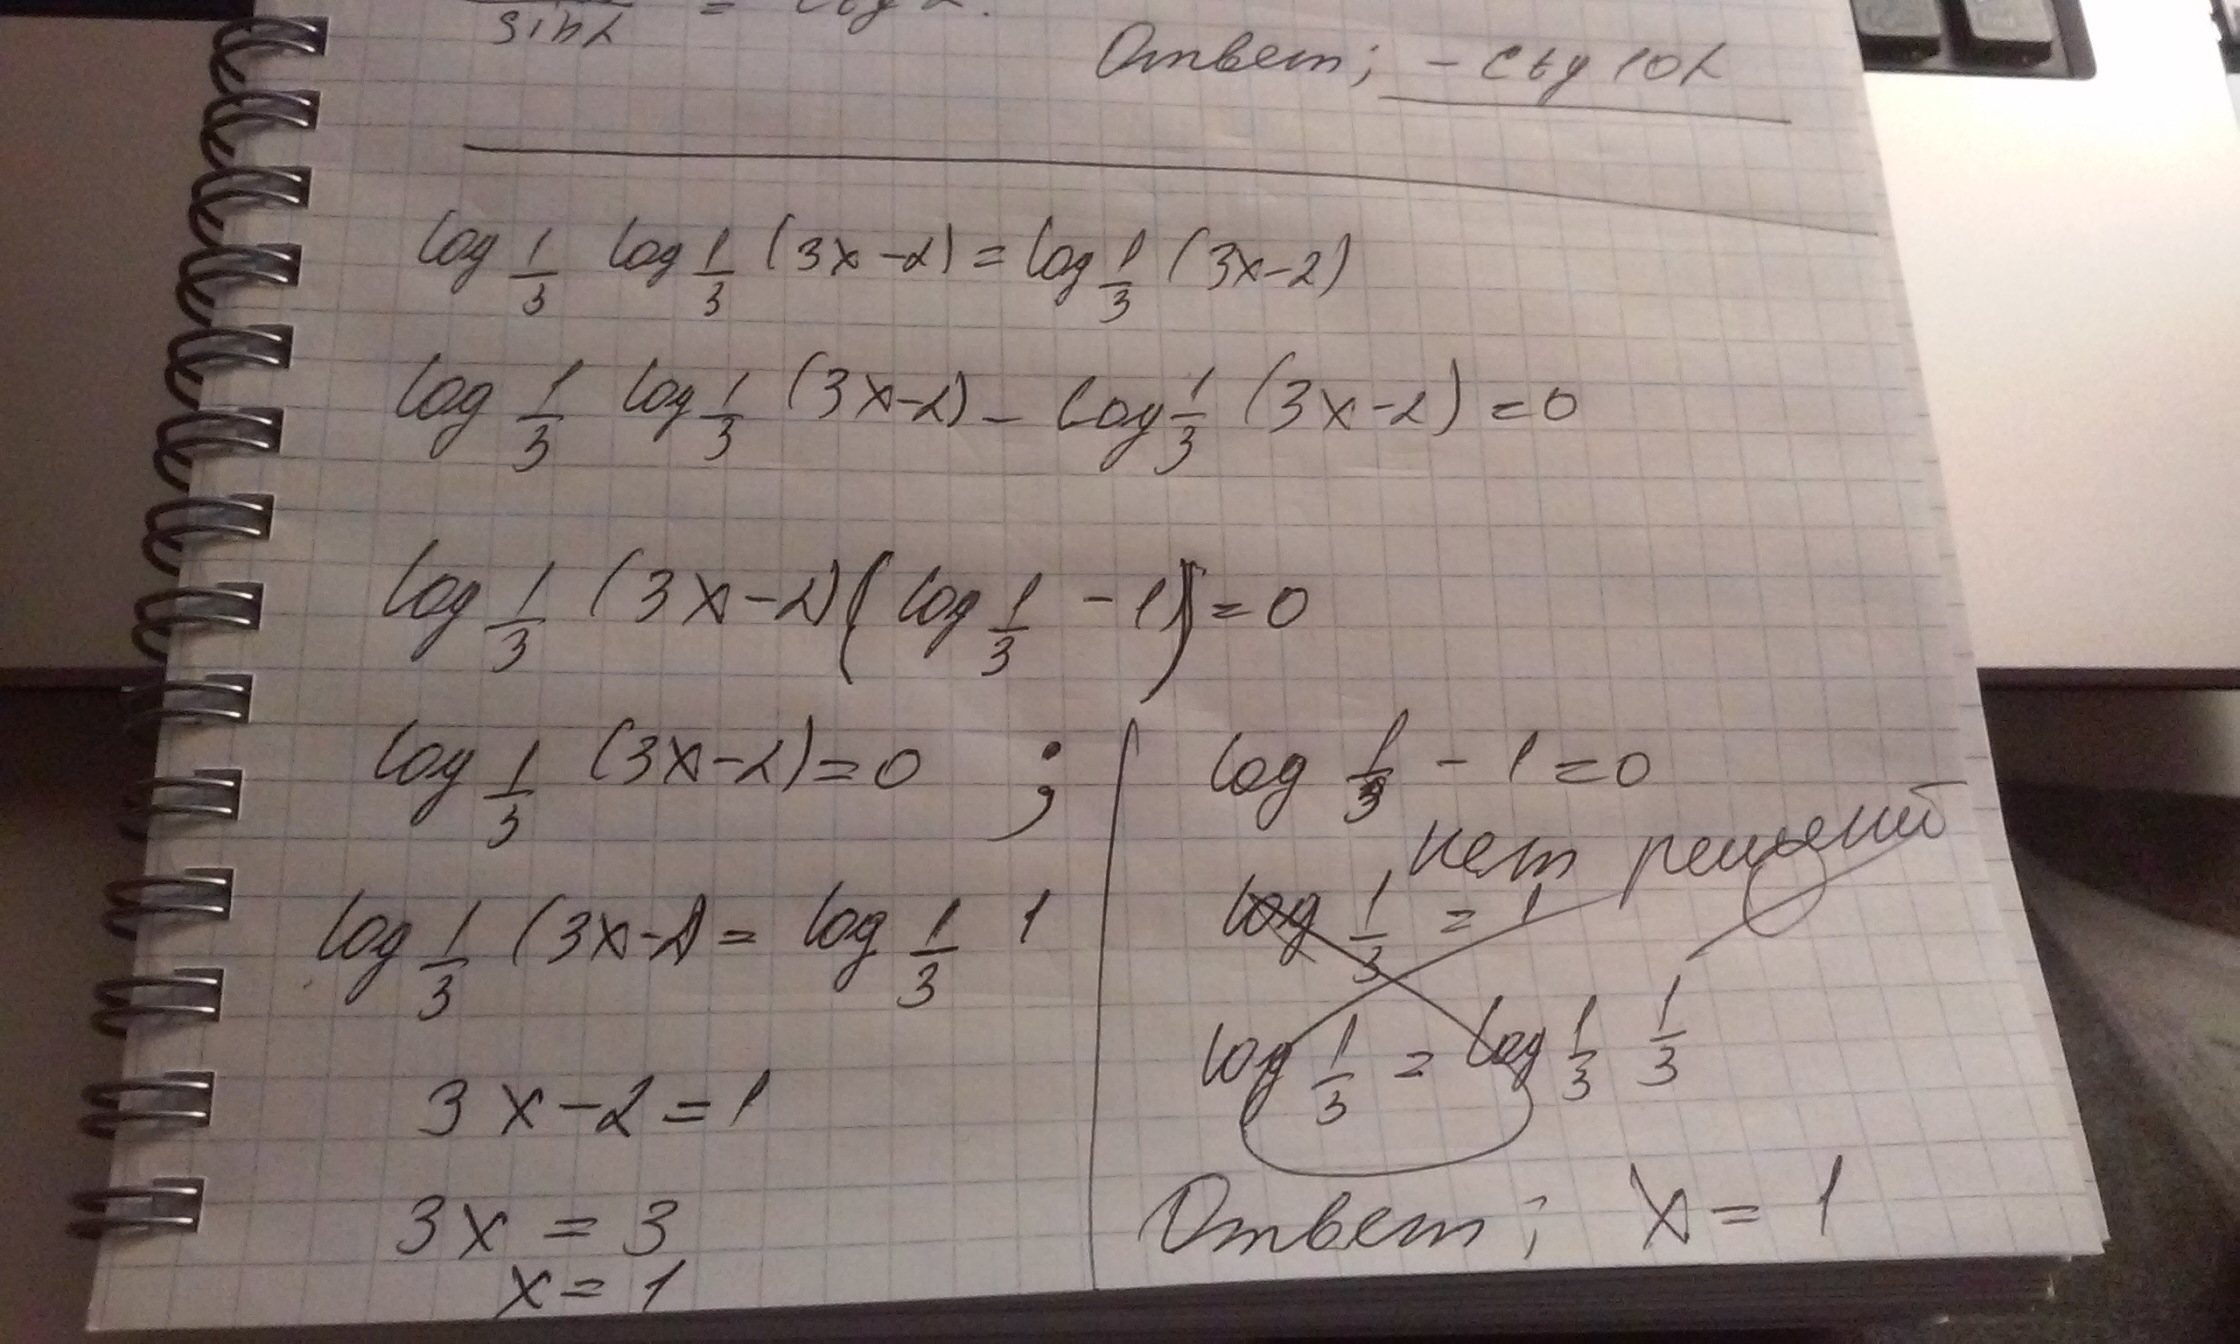 sinα = ctg α.
Ответ; - ctg 10α
log 1/3 log 1/3 (3x-2) = log 1/3 (3x-2)
log 1/3 log 1/3 (3x-2) - log 1/3 (3x-2) = 0
log 1/3 (3x-2) (log 1/3 - 1) = 0
log 1/3 (3x-2) = 0 ;
log 1/3 (3x-2) = log 1/3 1
3x-2 = 1
3x = 3
x = 1
log 1/3 - 1 = 0
нет решений
log 1/3 = 1
log 1/3 = log 1/3 1/3
Ответ; x = 1